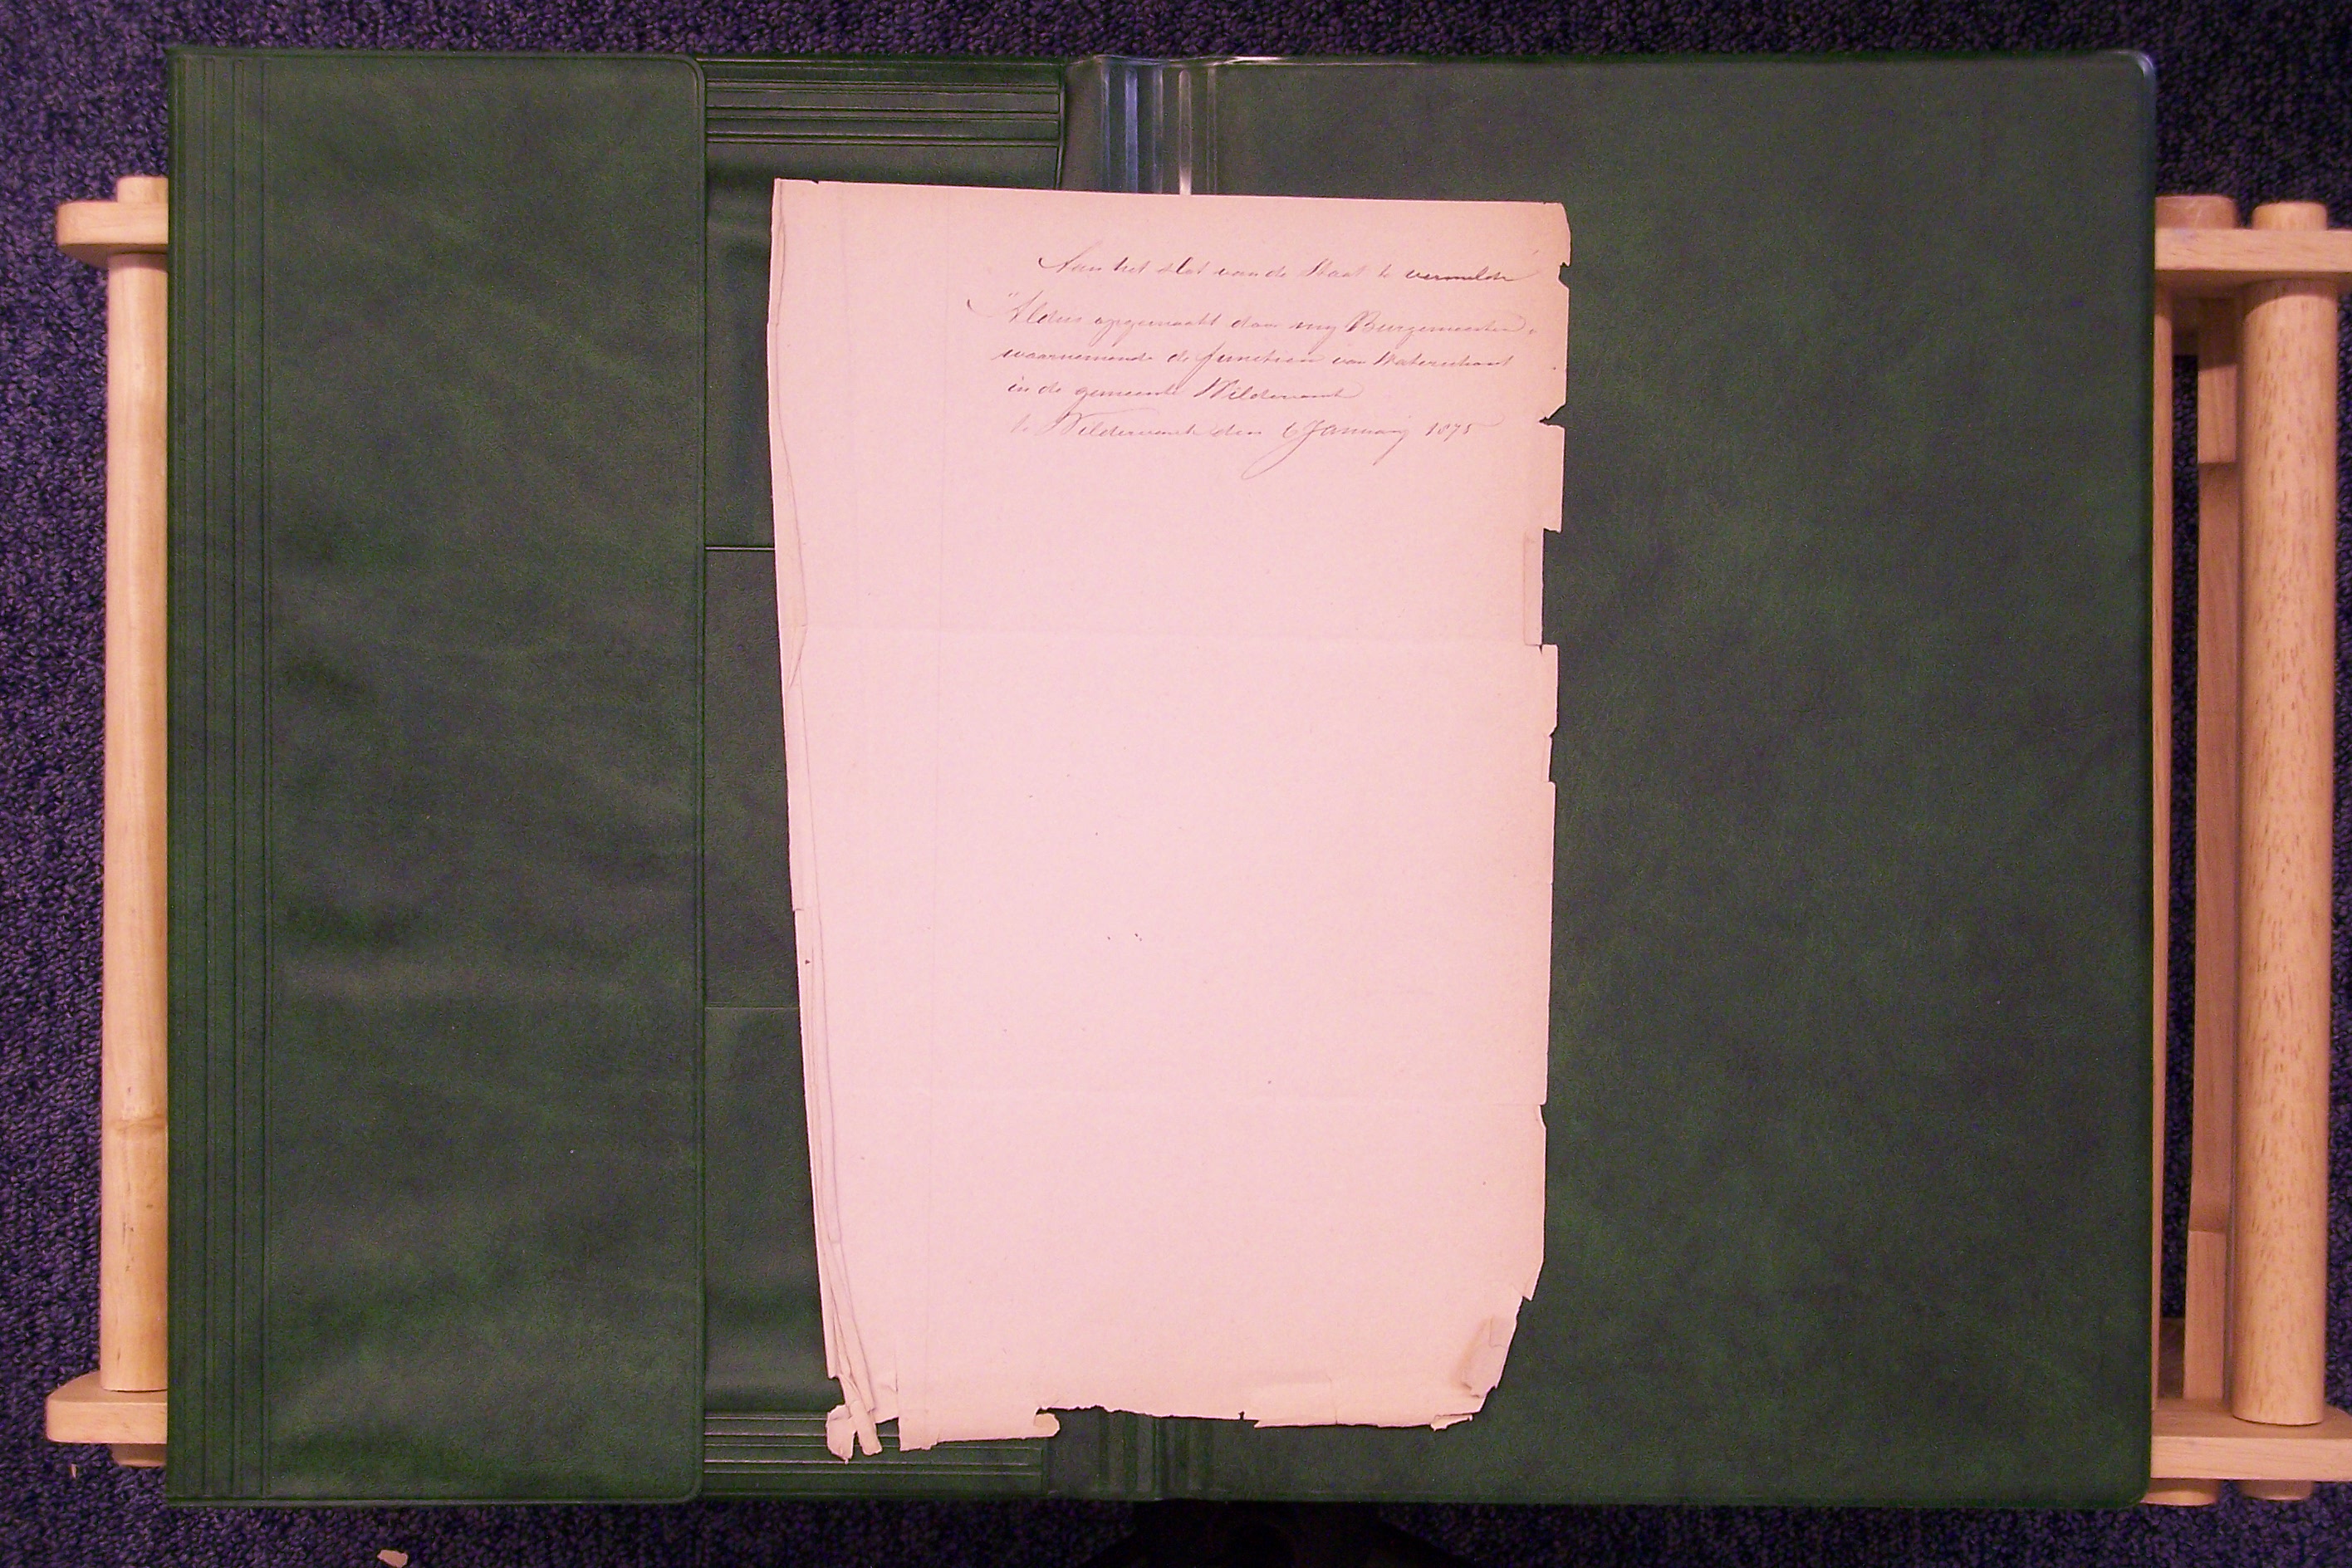 Aan het slot van de Staat te vermelden
"Aldus opgemaakt door mij Burgemeester,
waarnemende de functien van Waterschout
in de gemeente Wildervank
te Wildervank den 6 January 1875